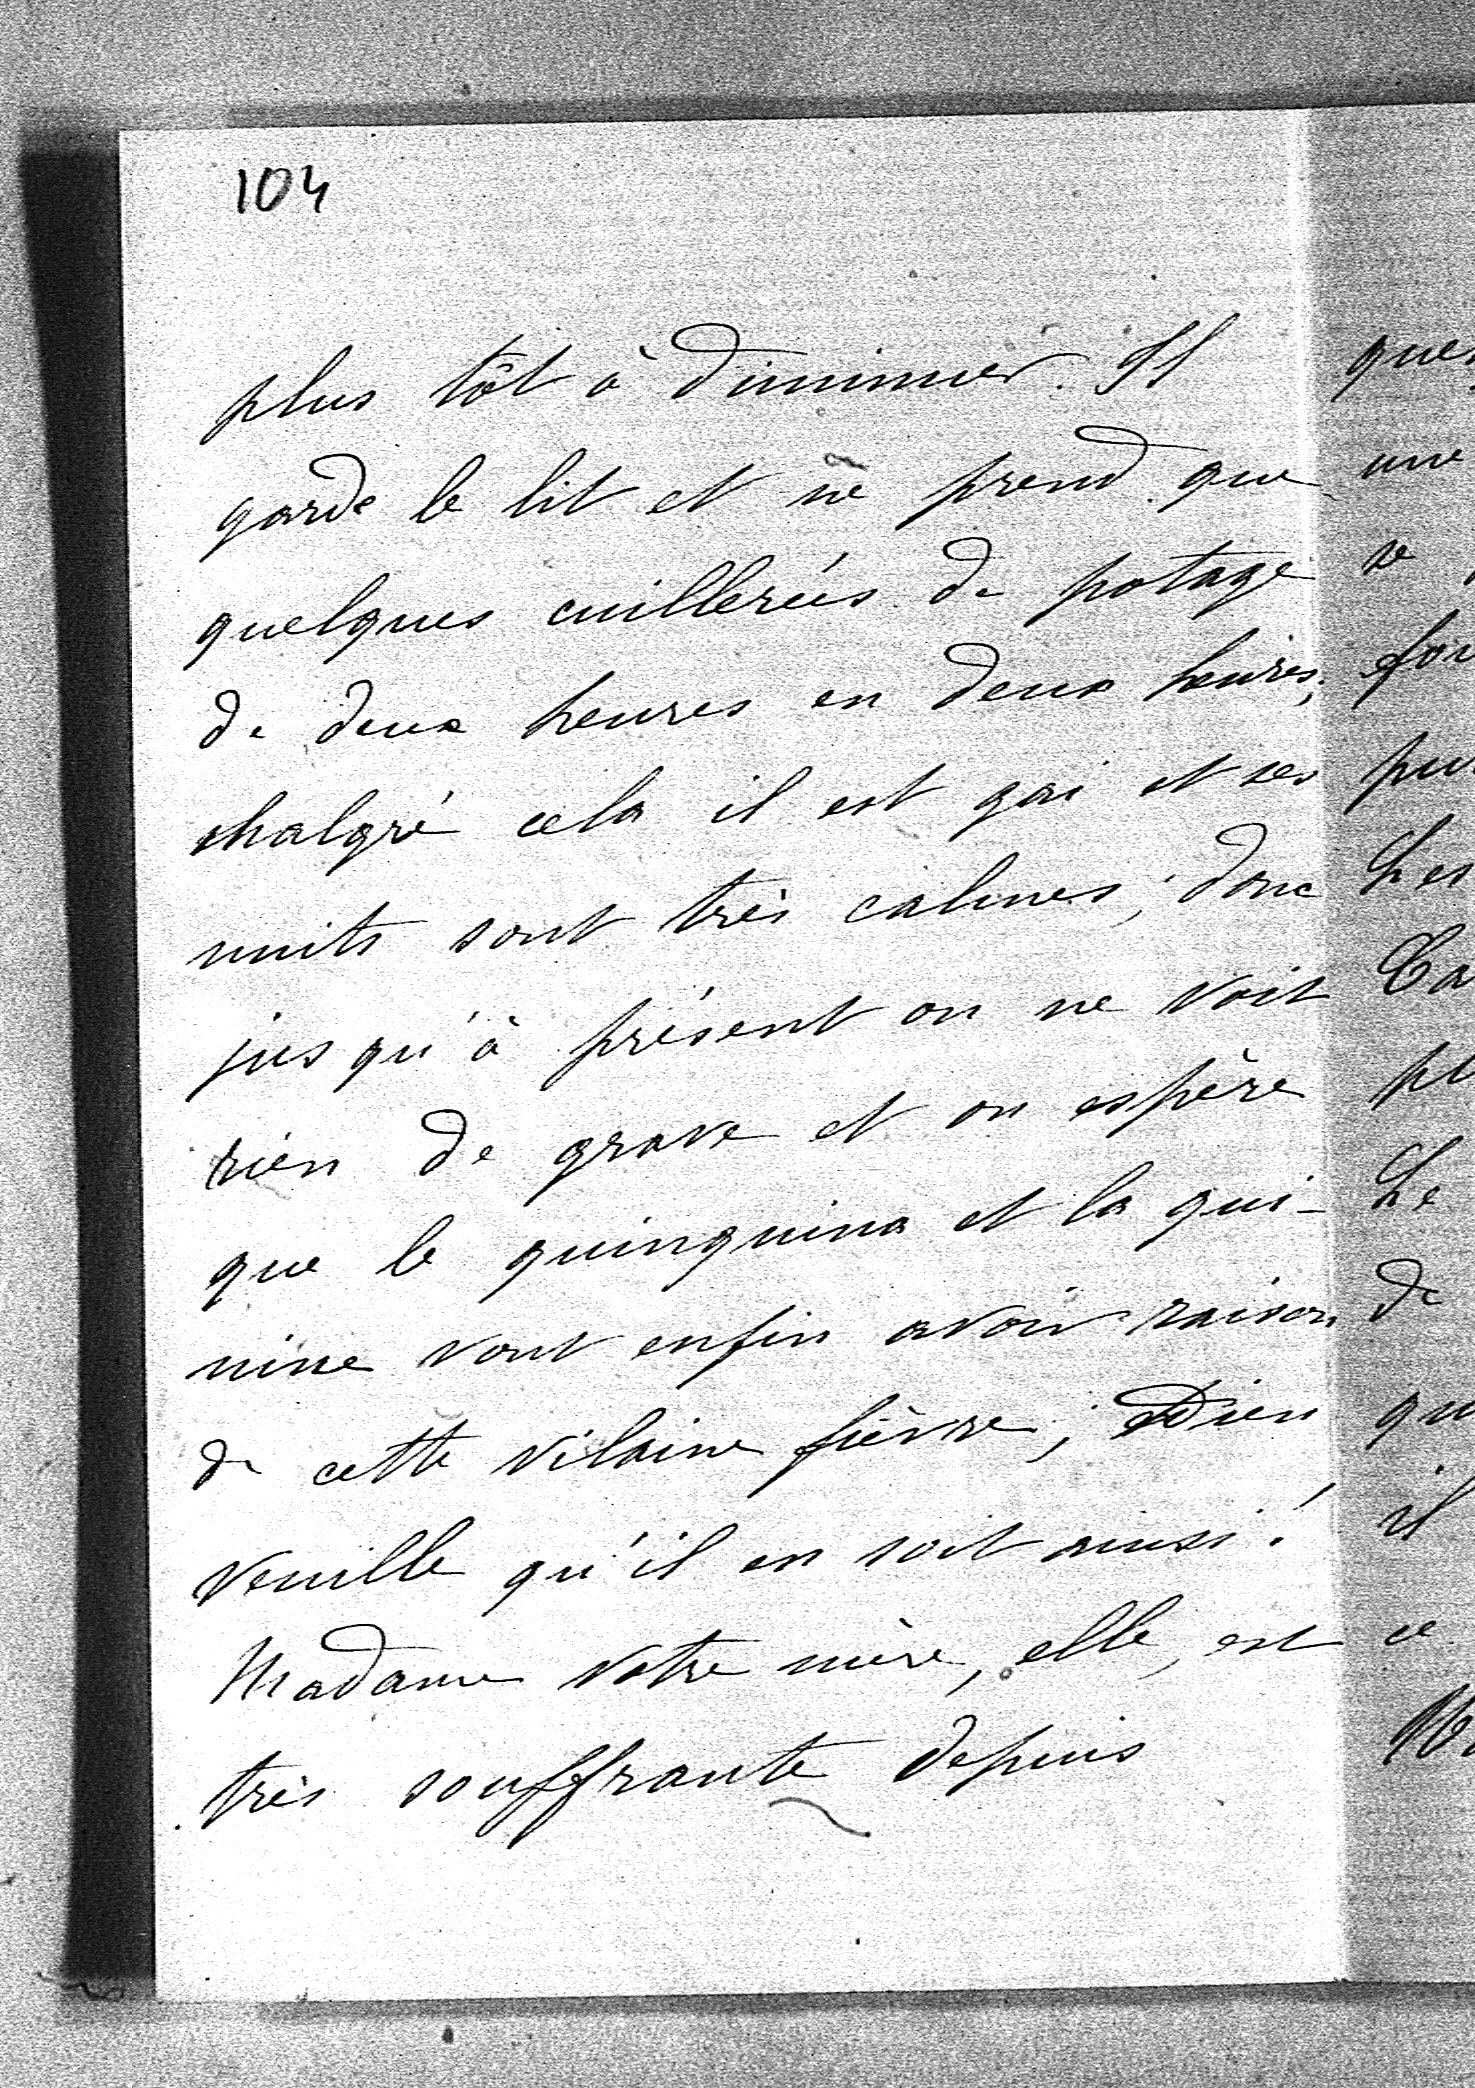 104
plus tôt à diminuer. Il
garde le lit et ne prend que
quelques cuillerées de potage
de deux heures en deux heures;
malgré cela il est gai et ses
nuits sont très calmes; donc
jusqu'à présent on ne voit
rien de grave et on espère
que le quinquina et la qui-
nine vont enfin avoir raison
de cette vilaine fièvre; Dieu
veuille qu'il en soit ainsi!
Madame votre mère, elle, est
très souffrante depuis
une
se
Les
Le
de
il
ce